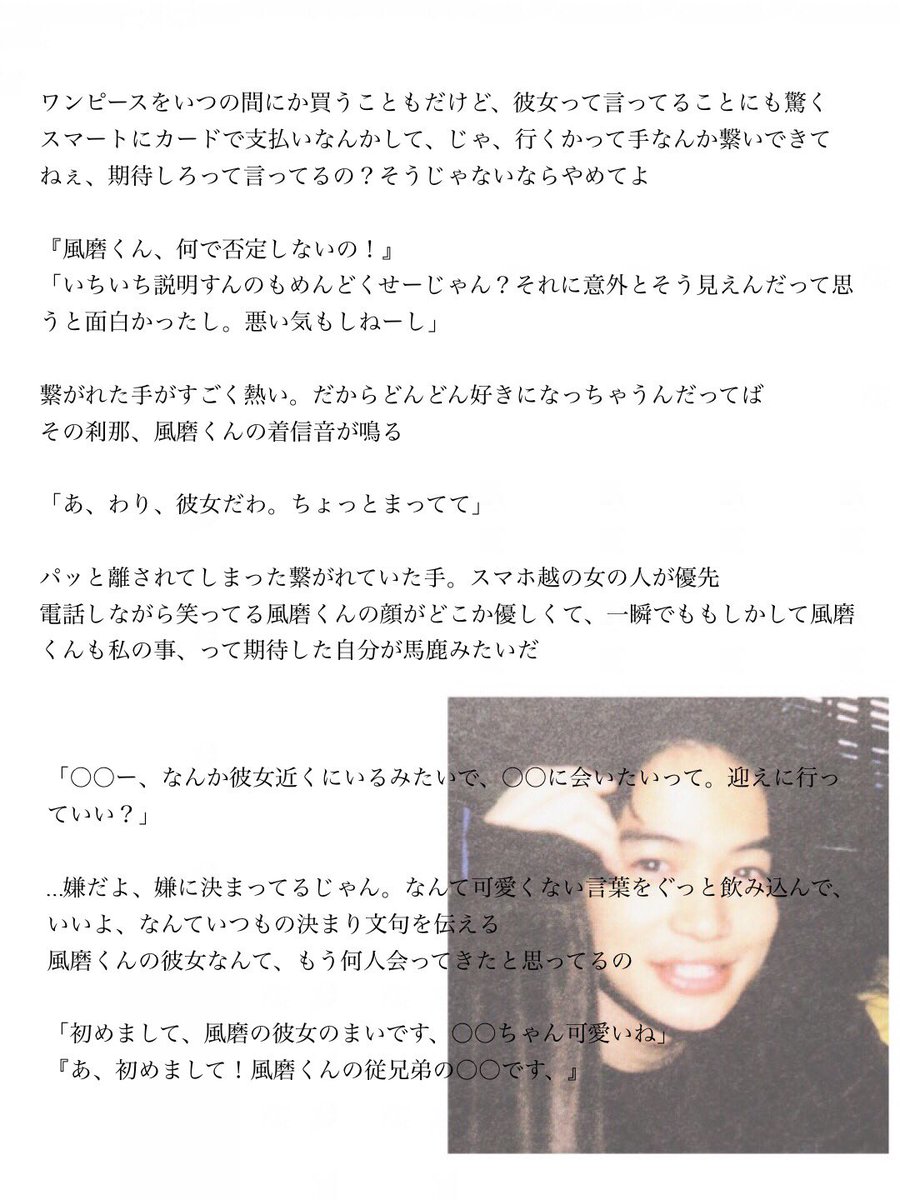 ワンピースをいつの間にか買うこともだけど、彼女って言ってることにも驚く
スマートにカードで支払いなんかして、じゃ、行くかって手なんか繋いできて
ねぇ、期待しろって言ってるの？そうじゃないならやめてよ
『風磨くん、何で否定しないの！』
「いちいち説明すんのもめんどくせーじゃん？それに意外とそう見えんだって思
うと面白かったし。悪い気もしねーし」
繋がれた手がすごく熱い。だからどんどん好きになっちゃうんだってば
その刹那、風磨くんの着信音が鳴る
「あ、わり、彼女だわ。ちょっとまってて」
パッと離されてしまった繋がれていた手。スマホ越の女の人が優先
電話しながら笑ってる風磨くんの顔がどこか優しくて、一瞬でももしかして風磨
くんも私の事、って期待した自分が馬鹿みたいだ
「○○ー、なんか彼女近くにいるみたいで、○○に会いたいって。迎えに行っ
ていい？」
...嫌だよ、嫌に決まってるじゃん。なんて可愛くない言葉をぐっと飲み込んで、
いいよ、なんていつもの決まり文句を伝える
風磨くんの彼女なんて、もう何人会ってきたと思ってるの
「初めまして、風磨の彼女のまいです、○○ちゃん可愛いね」
『あ、初めまして！風磨くんの従兄弟の○○です、』